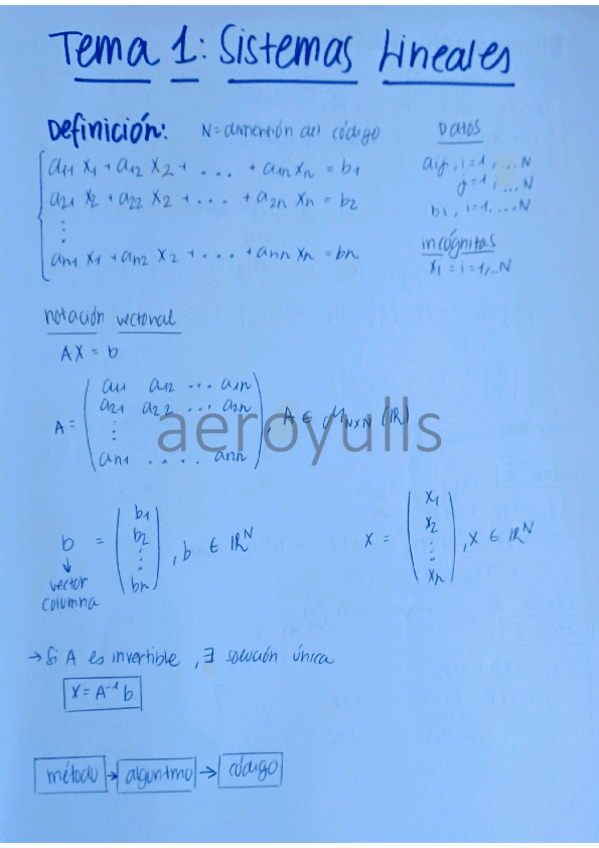 Tema 1: Sistemas Lineales
Definición: N = dimensión del código
a11 x1 + a12 x2 + . . . + a1n xn = b1
a21 x2 + a22 x2 + . . . + a2n xn = b2
⋮
an1 x1 + an2 x2 + . . . + ann xn = bn
Datos
aij, i=1, ...N
j=1, ...N
bi, i=1, ...N
incógnitas
xi = i=1,..N
notación vectorial
AX = b
A = ( a11 a12 ... a1n
a21 a22 ... a2n
⋮
an1 . . . . ann ), A ∈ MN×N (IR)
aeroyulls
b = ( b1
b2
⋮
bn ), b ∈ IRN
↓
vector
columna
X = ( x1
x2
⋮
xn ), X ∈ IRN
→ Si A es invertible, ∃ solución única
X = A-1 b
método → algoritmo → código